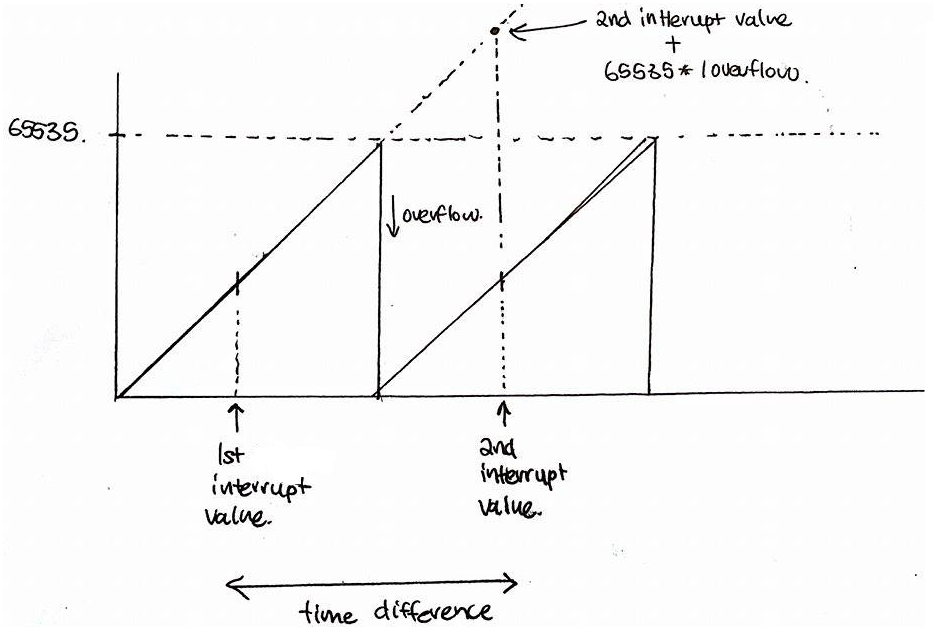 2nd interrupt value
+
65535 * 1 overflow.
65535.
overflow.
1st
interrupt
value.
2nd
interrupt
value.
time difference